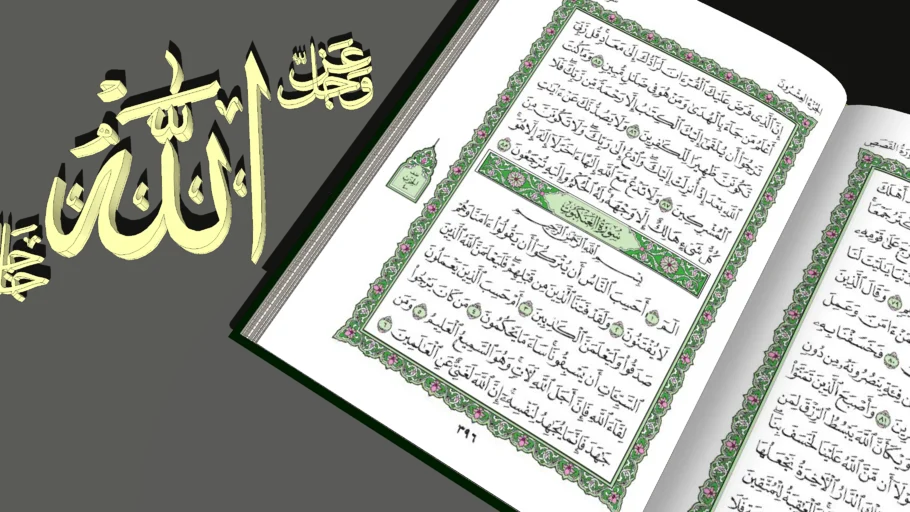 عز وجل
الله
جل جلاله
الجزء العشرون
إِنَّ ٱلَّذِى فَرَضَ عَلَيْكَ ٱلْقُرْءَانَ لَرَآدُّكَ إِلَىٰ مَعَادٍ ۚ قُل رَّبِّىٓ
أَعْلَمُ مَن جَآءَ بِٱلْهُدَىٰ وَمَنْ هُوَ فِى ضَلَٰلٍ مُّبِينٍ ٨٥ وَمَا كُنتَ
تَرْجُوٓا۟ أَن يُلْقَىٰٓ إِلَيْكَ ٱلْكِتَٰبُ إِلَّا رَحْمَةً مِّن رَّبِّكَ ۖ فَلَا
تَكُونَنَّ ظَهِيرًا لِّلْكَٰفِرِينَ ٨٦ وَلَا يَصُدُّنَّكَ عَنْ ءَايَٰتِ
ٱللَّهِ بَعْدَ إِذْ أُنزِلَتْ إِلَيْكَ ۖ وَٱدْعُ إِلَىٰ رَبِّكَ ۖ وَلَا تَكُونَنَّ مِنَ
ٱلْمُشْرِكِينَ ٨٧ وَلَا تَدْعُ مَعَ ٱللَّهِ إِلَٰهًا ءَاخَرَ ۘ لَآ إِلَٰهَ إِلَّا هُوَ ۚ
كُلُّ شَىْءٍ هَالِكٌ إِلَّا وَجْهَهُۥ ۚ لَهُ ٱلْحُكْمُ وَإِلَيْهِ تُرْجَعُونَ ٨٨
سُورَةُ العَنكَبُوتِ
بِسْمِ ٱللَّهِ ٱلرَّحْمَٰنِ ٱلرَّحِيمِ
الٓمٓ ١ أَحَسِبَ ٱلنَّاسُ أَن يُتْرَكُوٓا۟ أَن يَقُولُوٓا۟ ءَامَنَّا وَهُمْ
لَا يُفْتَنُونَ ٢ وَلَقَدْ فَتَنَّا ٱلَّذِينَ مِن قَبْلِهِمْ ۖ فَلَيَعْلَمَنَّ ٱللَّهُ ٱلَّذِينَ
صَدَقُوا۟ وَلَيَعْلَمَنَّ ٱلْكَٰذِبِينَ ٣ أَمْ حَسِبَ ٱلَّذِينَ يَعْمَلُونَ
ٱلسَّيِّـَٔاتِ أَن يَسْبِقُونَا ۚ سَآءَ مَا يَحْكُمُونَ ٤ مَن كَانَ يَرْجُوا۟
لِقَآءَ ٱللَّهِ فَإِنَّ أَجَلَ ٱللَّهِ لَءَاتٍ ۚ وَهُوَ ٱلسَّمِيعُ ٱلْعَلِيمُ ٥ وَمَن
جَٰهَدَ فَإِنَّمَا يُجَٰهِدُ لِنَفْسِهِۦٓ ۚ إِنَّ ٱللَّهَ لَغَنِىٌّ عَنِ ٱلْعَٰلَمِينَ ٦
٣٩٦
سورة القصص
عَلَىٰ قَوْمِهِۦ
يَٰلَيْتَ لَنَا
وَقَالَ ٱلَّذِينَ
ءَامَنَ وَعَمِلَ
٨٠ فَخَسَفْنَا بِهِۦ
فِئَةٍ يَنصُرُونَهُۥ مِن دُونِ
٨١ وَأَصْبَحَ ٱلَّذِينَ تَمَنَّوْا۟
وَيْكَأَنَّ ٱللَّهَ يَبْسُطُ ٱلرِّزْقَ لِمَن
لَوْلَآ أَن مَّنَّ ٱللَّهُ عَلَيْنَا لَخَسَفَ بِنَا
تِلْكَ ٱلدَّارُ ٱلْءَاخِرَةُ نَجْعَلُهَا